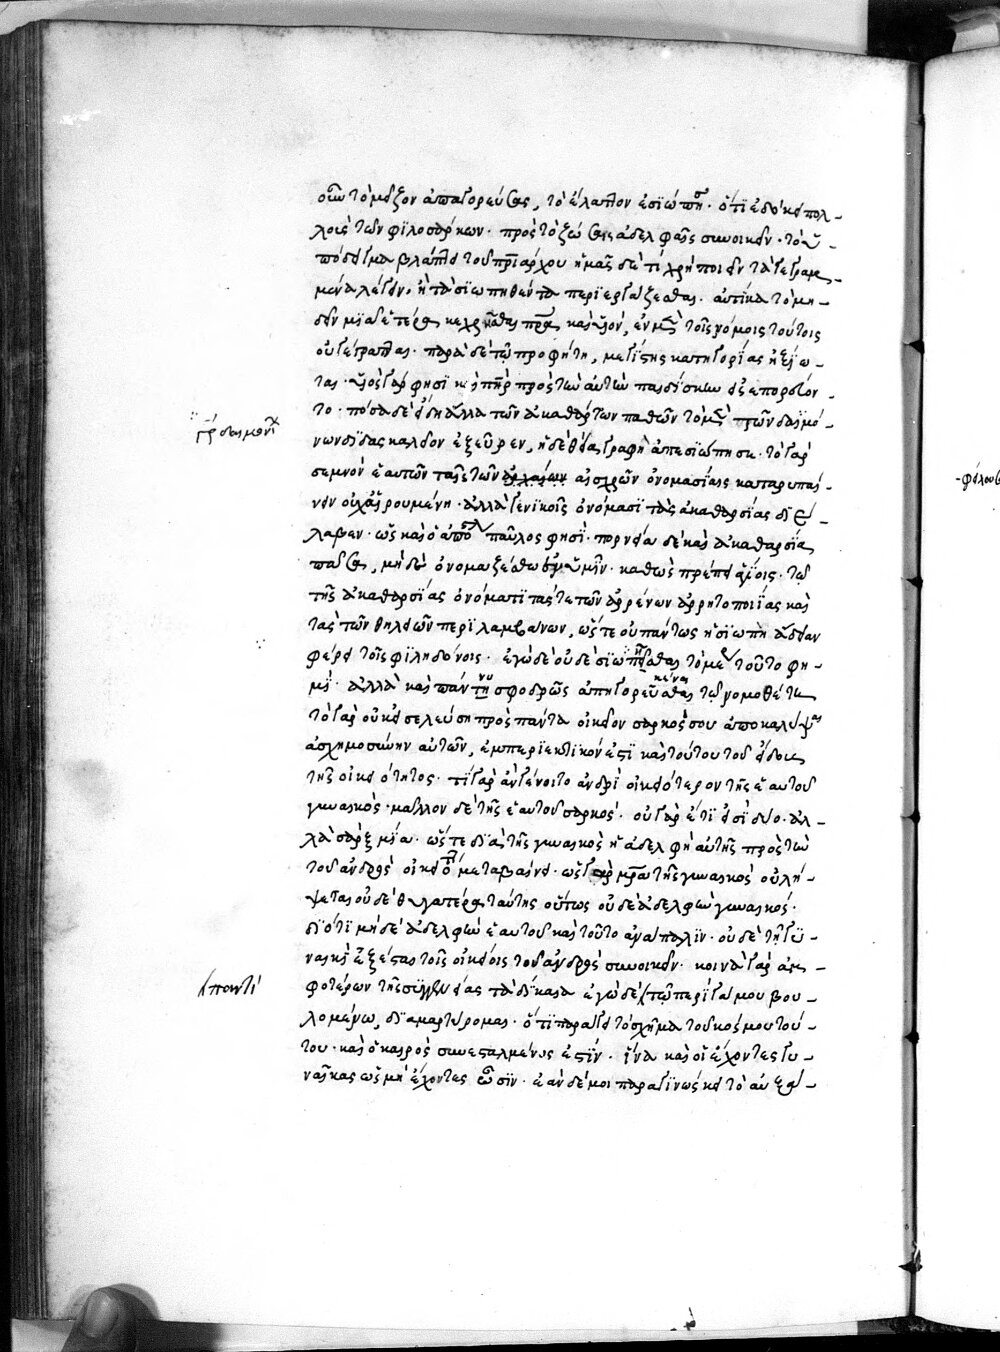 οὕτω τὸ μεῖζον ἀπαγορεύσας, τὸ ἔλαττον ἐσιώπησ· ὅτι ἐδόκει πολ-
λοὺς τῶν φιλοσάρκων· πρὸς τὸ ζώσαις ἀδελφαῖς συνοικεῖν· τὸ ὑ-
πόδειγμα βλάπτει τοῦ πριάρχου ἡμᾶς δὲ τί χρὴ ποιεῖν τὰ γεγραμ-
μένα λέγειν, ἢ τὰ σιωπηθέντα περιεργάζεσθαι. αὐτίκα τὸ μὴ
δεῖν μιᾷ ἑτέρᾳ κεχρῆσθαι πρα καὶ υἱόν, ἐν μὲν τοῖς νόμοις τούτοις
οὐ γέγραπται· παρὰ δὲ τῷ προφήτῃ, μεγίστης κατηγορίας ἠξίω-
ται· υἱὸς γάρ φησι καὶ πηρ πρὸς τὴν αὐτὴν παιδίσκην εἰσεπορεύον-
το· πόσα δὲ εἴδη ἄλλα τῶν ἀκαθάρτων παθῶν τὸ μὲν τῶν δαιμό-
νων διδασκαλεῖον ἐξεῦρεν, ἡ δὲ θεία γραφὴ ἀπεσιώπησε· τὸ γὰρ
σεμνὸν ἑαυτῶν ταῖς τῶν ἀρχαίων αἰσχρῶν ὀνομασίαις καταρυπαί-
νειν οὐχ αἱρουμένη· ἀλλὰ γενικοῖς ὀνόμασι τὰς ἀκαθαρσίας διέ-
λαβεν· ὡς καὶ ὁ ἀπο παῦλος φησὶ· πορνεία δὲ καὶ ἀκαθαρσία
πᾶσα, μηδὲ ὀνομαζέσθω ἐν ὑμῖν· καθὼς πρέπει ἁγίοις· τῷ
τῆς ἀκαθαρσίας ὀνόματι τάς τε τῶν ἀρρένων ἀρρητοποιίας καὶ
τὰς τῶν θηλειῶν περιλαμβάνων, ὥστε οὐ πάντως ἡ σιωπὴ ἄδειαν
φέρει τοῖς φιληδόνοις· ἐγὼ δὲ οὐδὲ σιωπῆσθαι τὸ με τοῦτο φη-
μὶ· ἀλλὰ καὶ πάνυ σφοδρῶς ἀπηγορευκέναι τῷ νομοθέτῃ
τὸ γὰρ οὐκ εἰσελεύσῃ πρὸς πάντα οἰκεῖον σαρκός σου ἀποκαλύψαι
ἀσχημοσύνην αὐτῶν, ἐμπεριεκτικόν ἐστι καὶ τούτου τοῦ εἴδους
τῆς οἰκειότητος· τί γὰρ ἂν γένοιτο ἀνδρὶ οἰκειότερον τῆς ἑαυτοῦ
γυναικὸς· μᾶλλον δὲ τῆς ἑαυτοῦ σαρκός· οὐ γὰρ ἔτι εἰσὶ δύο· ἀλ-
λὰ σὰρξ μία· ὥστε διὰ τῆς γυναικὸς ἡ ἀδελφὴ αὐτῆς πρὸς τὴν
τοῦ ἀνδρὸς οἰκειοτ μεταβαίνει· ὡς γὰρ μρα τῆς γυναικὸς οὐ λή-
ψεται οὐδὲ θυγατέρα ταύτης οὕτως οὐδὲ ἀδελφὴν γυναικός·
διότι μηδὲ ἀδελφὴν ἑαυτοῦ καὶ τοῦτο ἀνάπαλιν· οὐδὲ τῇ γυ-
ναικὶ ἐξέσται τοῖς οἰκείοις τοῦ ἀνδρὸς συνοικεῖν· κοινὰ γὰρ ἀμ-
φοτέρων τῆς συγγενείας τὰ δίκαια ἐγὼ δὲ τῷ περὶ γάμου βου-
λομένω, διαμαρτύρομαι· ὅτι παράγει τὸ σχῆμα τοῦ κόσμου τού-
του· καὶ ὁ καιρὸς συνεσταλμένος ἐστίν· ἵνα καὶ οἱ ἔχοντες γυ-
ναῖκας ὡς μὴ ἔχοντες ὦσιν· ἐὰν δέ μοι παραγινώσκει τὸ αὐξά-